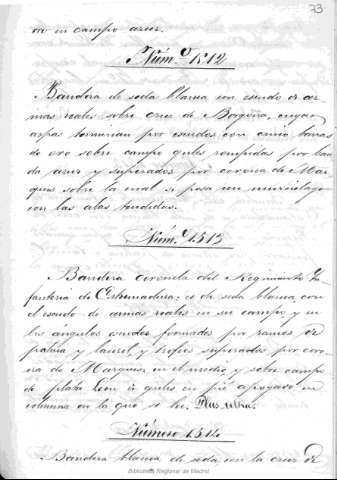 73
ro en campo azur.
Núm.º 1512
Bandera de seda blanca con escudo de ar
mas reales sobre cruz de Borgoña, cuyas
aspas terminan por escudos con cinco barras
de oro sobre campo gules rompidas por ban
da azur y superados por corona de Mar
ques sobre la cual se posa un murcielago
con las alas tendidas.
Núm.º 1513
Bandera coronela del Regimiento Yn
fanteria de Extremadura; es de seda blanca, con
el escudo de armas reales en su campo y en
los ángulos escudos formados por ramos de
palma y laurel, y trofeos superados por coro
na de Marques, en el medio y sobre campo
de plata Leon de gules en pié apoyado en
columna en la que se lee. Plus ultra.
Número 1514
Bandera blanca de seda con la cruz de
Biblioteca Regional de Madrid